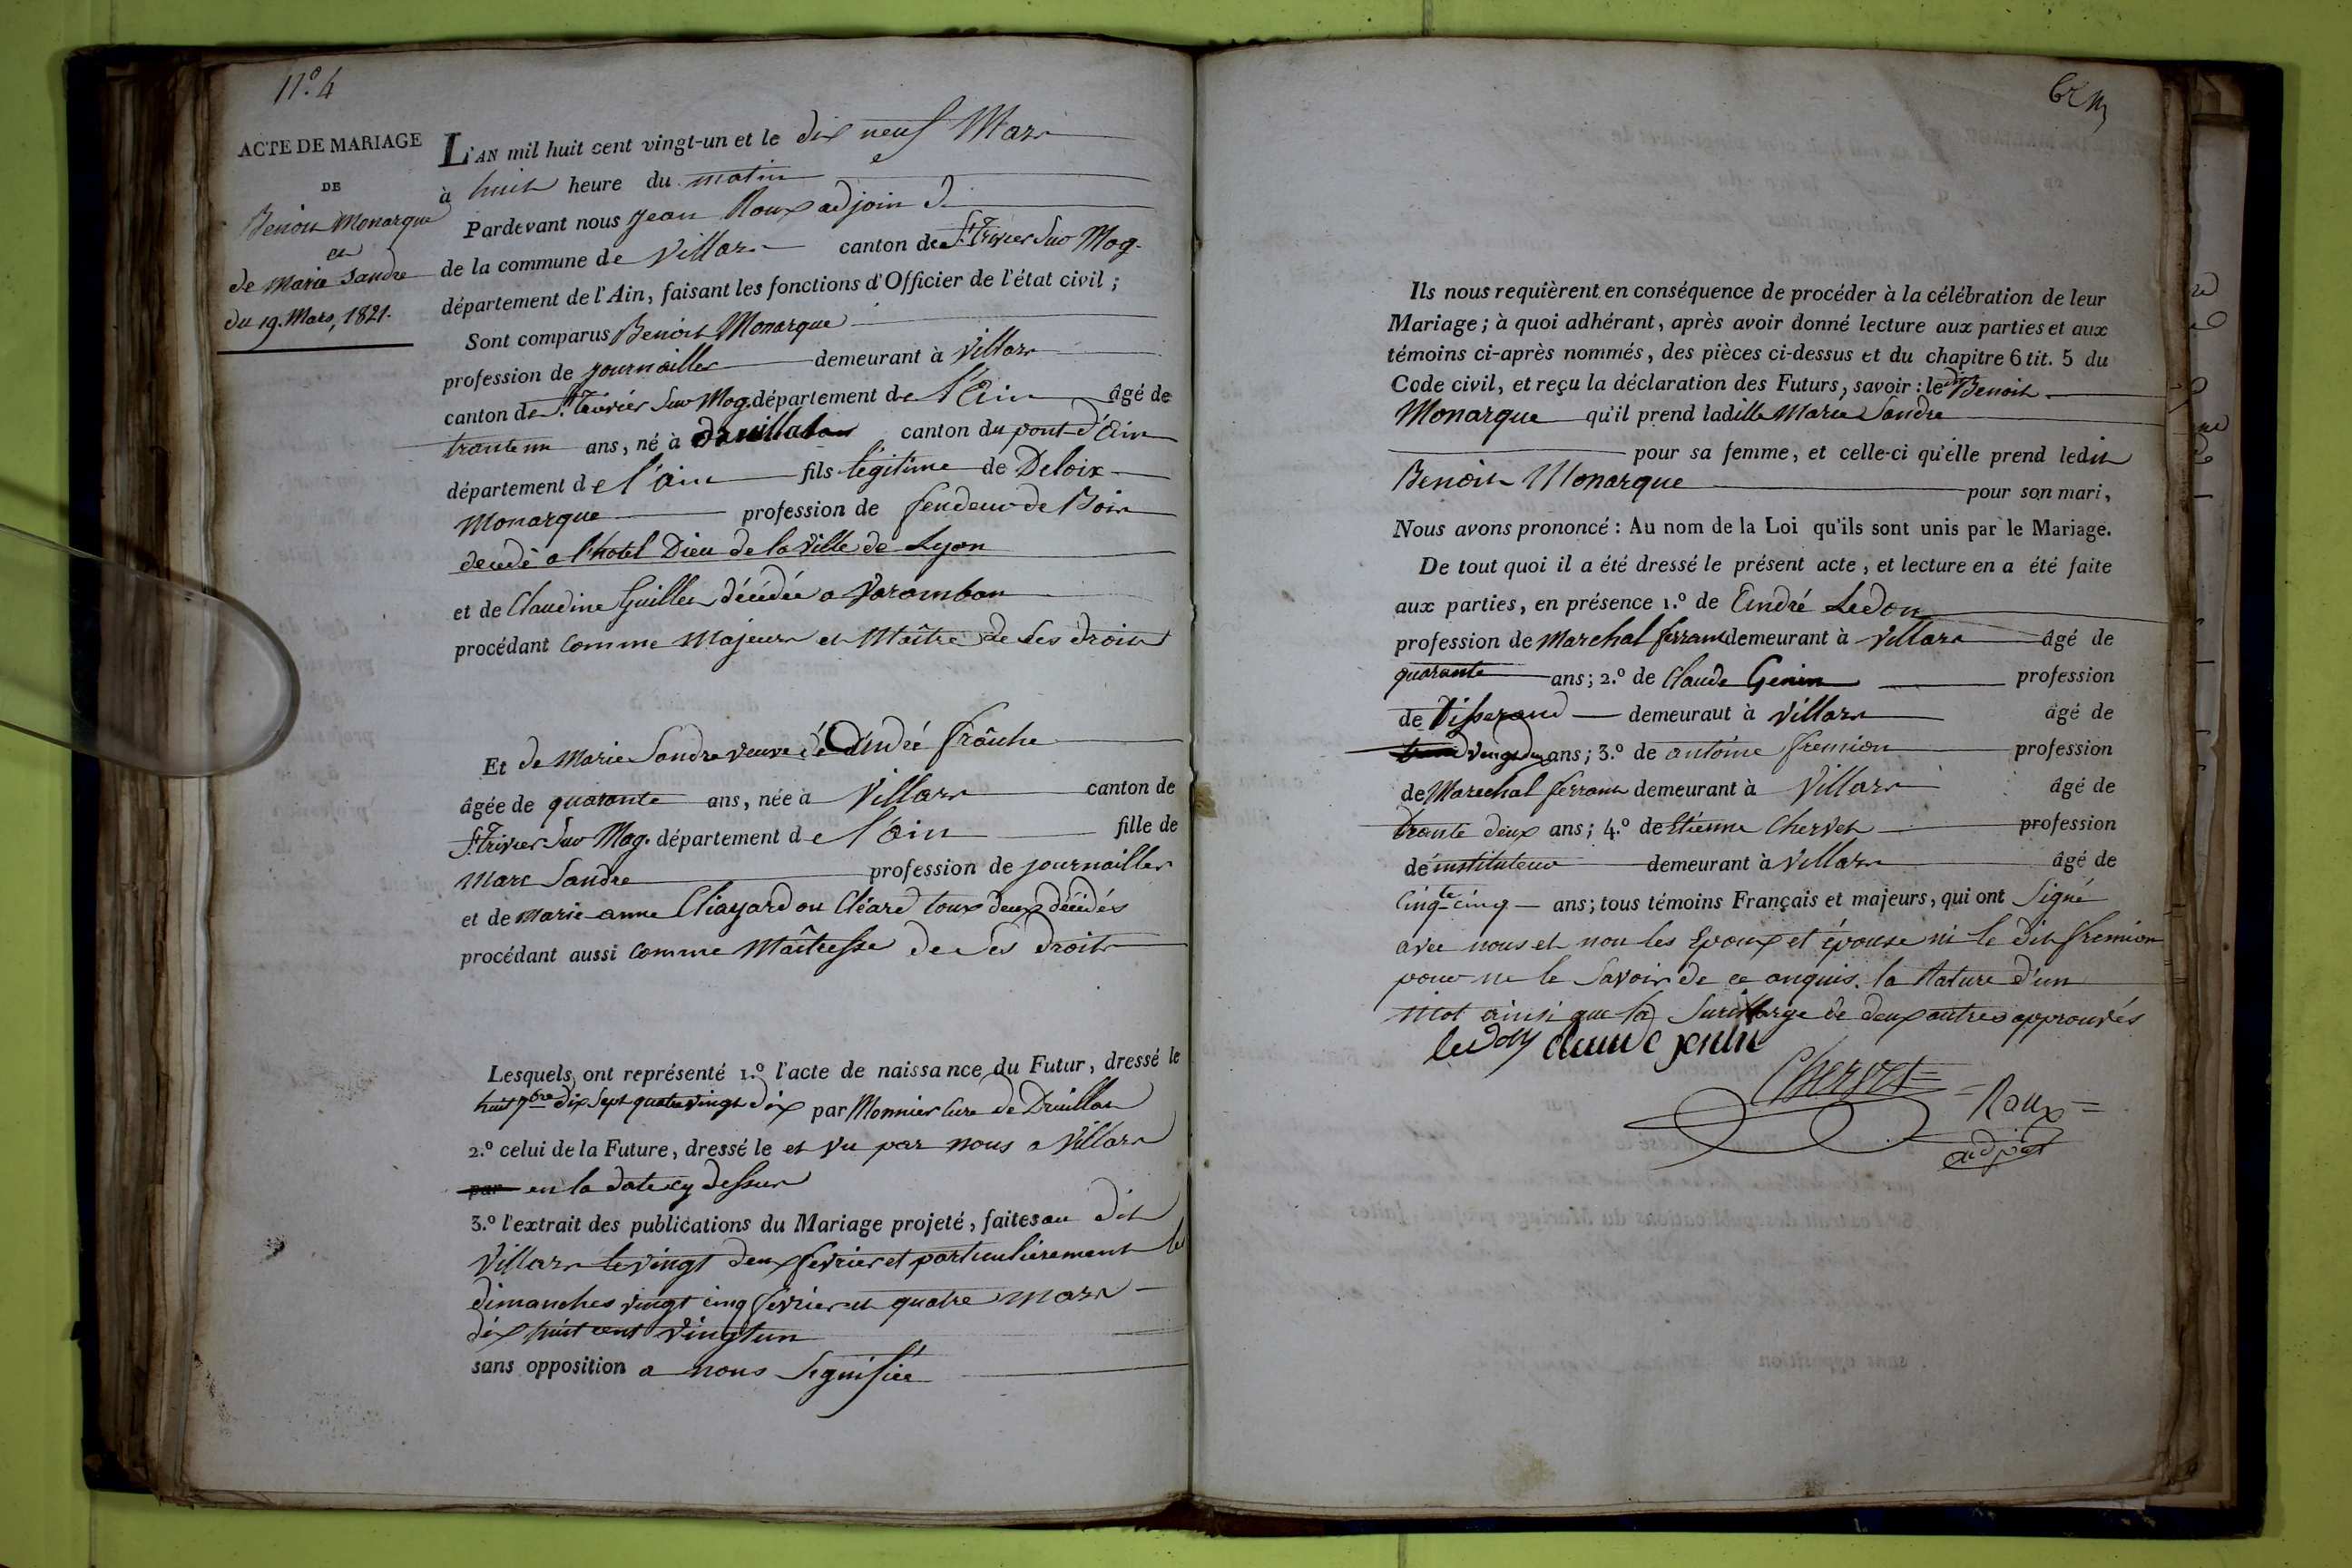 N.º 4
ACTE DE MARIAGE
DE
Benoit Monarque
et
de Marie Sandre
du 19. Mars, 1821.
L'AN mil huit cent vingt-un et le dix neuf Mars
à huit heure du matin
Pardevant nous Jean Roux adjoin d
de la commune de Villars canton de St. Trivier Sur Mog.
département de l'Ain, faisant les fonctions d'Officier de l'état civil ;
Sont comparus Benoit Monarque
profession de journallier demeurant à Villars
canton de St. Trivier Sur Mog. département de l'Ain âgé de
trante un ans, né à Druillat canton du pont d'Ain
département de l'ain fils légitime de Deloix
Monarque profession de fendeur de Bois
decedé a l'hotel Dieu de la Ville de Lyon
et de Claudine Guillet décédée a Varambon
procédant comme Majeurs et Maître de ses droits
Et de Marie Sandre veuve de d'André frâuche
âgée de quarante ans, née à Villars canton de
St. Trivier Sur Mog. département de l'ain fille de
Marc Sandre profession de journallier
et de Marie anne Chayard ou Cléard tous deux décédés
procédant aussi comme Maîtresse de ses droits
Lesquels ont représenté 1.º l'acte de naissance du Futur, dressé le
huit 7bre dix sept quatrevingt dix par Monnier Cure de Druillat
2.º celui de la Future, dressé le et vu par nous a Villars
par en la date cy dessus
3.º l'extrait des publications du Mariage projeté, faites au dit
Villars le vingt deux fevrier et particulierement les
dimanches vingt cinq fevrier et quatre mars
dix huit cent vingt un
sans opposition a nous Signifiée
Ils nous requièrent en conséquence de procéder à la célébration de leur
Mariage ; à quoi adhérant, après avoir donné lecture aux parties et aux
témoins ci-après nommés, des pièces ci-dessus et du chapitre 6 tit. 5 du
Code civil, et reçu la déclaration des Futurs, savoir : le dt Benoit
Monarque qu'il prend ladille Marie Sandre
pour sa femme, et celle-ci qu'elle prend ledit
Benoit Monarque pour son mari,
Nous avons prononcé : Au nom de la Loi qu'ils sont unis par le Mariage.
De tout quoi il a été dressé le présent acte, et lecture en a été faite
aux parties, en présence 1.º de André Ledon
profession de Marechal ferrant demeurant à Villars âgé de
quarante ans ; 2.º de Claude Genin profession
de Tisserand demeuraut à Villars âgé de
vingt deux ans ; 3.º de antoine fremion profession
de Marechal ferrant demeurant à Villars âgé de
trante deux ans ; 4.º de Etienne Chervet profession
de instituteur demeurant à Villars âgé de
Cinqte cinq ans ; tous témoins Français et majeurs, qui ont Signé
avec nous et non les Epoux et épouse ni le dit fremion
pour ne le Savoir de ce enquis. la Rature d'un
Mot ainsi que la Surcharge de deux autres approuvés
ledon claude jenin
Chervet
Roux
adjoint